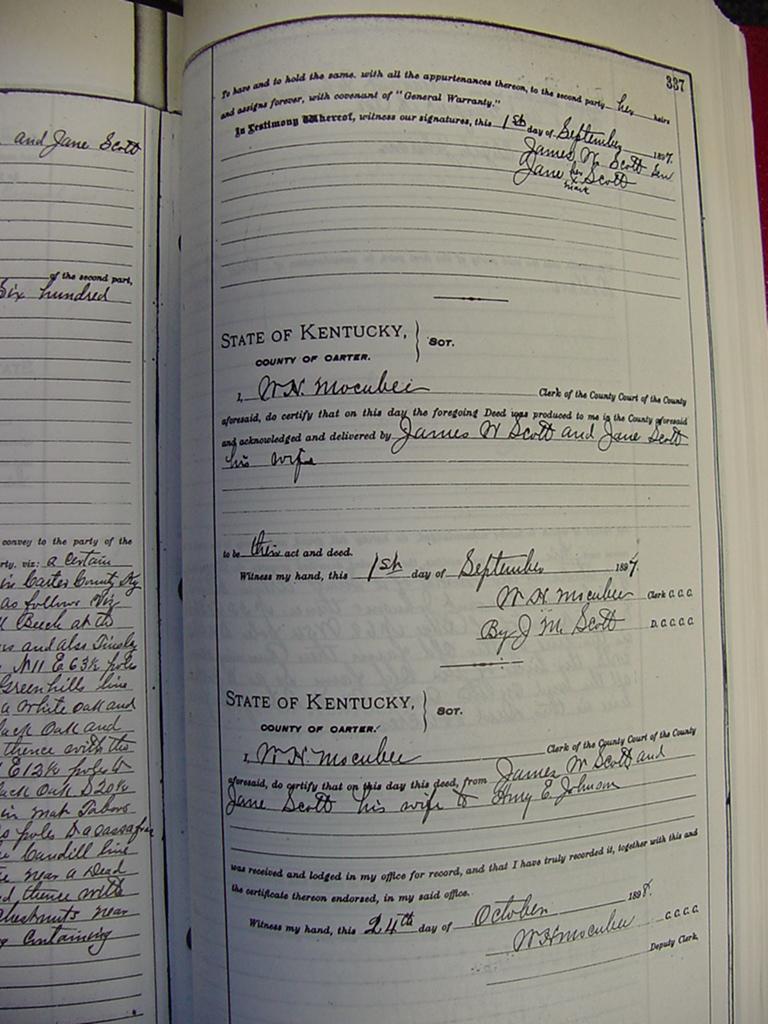 and Jane Scott
of the second part,
Six hundred
convey to the party of the
viz: a Certain
in Carter County Ky
as follows Viz
Beech at the
and also Tinsley
N11 E 63½ poles
Greenhills line
a White oak and
Oak and
thence with the
E 12½ poles to
Oak S20½
in Mat Tabors
poles to a sassafras
Caudill line
near a Dead
thence with
Chestnuts near
Containing
337
To have and to hold the same, with all the appurtenances thereon, to the second party her heirs
and assigns forever, with covenant of "General Warranty."
In Testimony Whereof, witness our signatures, this 1st day of September 1897.
James W. Scott Sen
Jane her x mark Scott
STATE OF KENTUCKY, } SCT.
COUNTY OF CARTER.
I, W.H. Mocubee Clerk of the County Court of the County
aforesaid, do certify that on this day the foregoing Deed was produced to me in the County aforesaid
and acknowledged and delivered by James W Scott and Jane Scott
his wife
to be their act and deed.
Witness my hand, this 1st day of September 1897.
W H Mocubee Clerk C. C. C.
By J M Scott D. C. C. C.
STATE OF KENTUCKY, } SCT.
COUNTY OF CARTER.
I, W.H. Mocubee Clerk of the County Court of the County
aforesaid, do certify that on this day this deed, from James W Scott and
Jane Scott his wife to Amy E. Johnson
was received and lodged in my office for record, and that I have truly recorded it, together with this and
the certificate thereon endorsed, in my said office.
Witness my hand, this 24th day of October 1898.
W H Mocubee C. C. C. C.
Deputy Clerk.